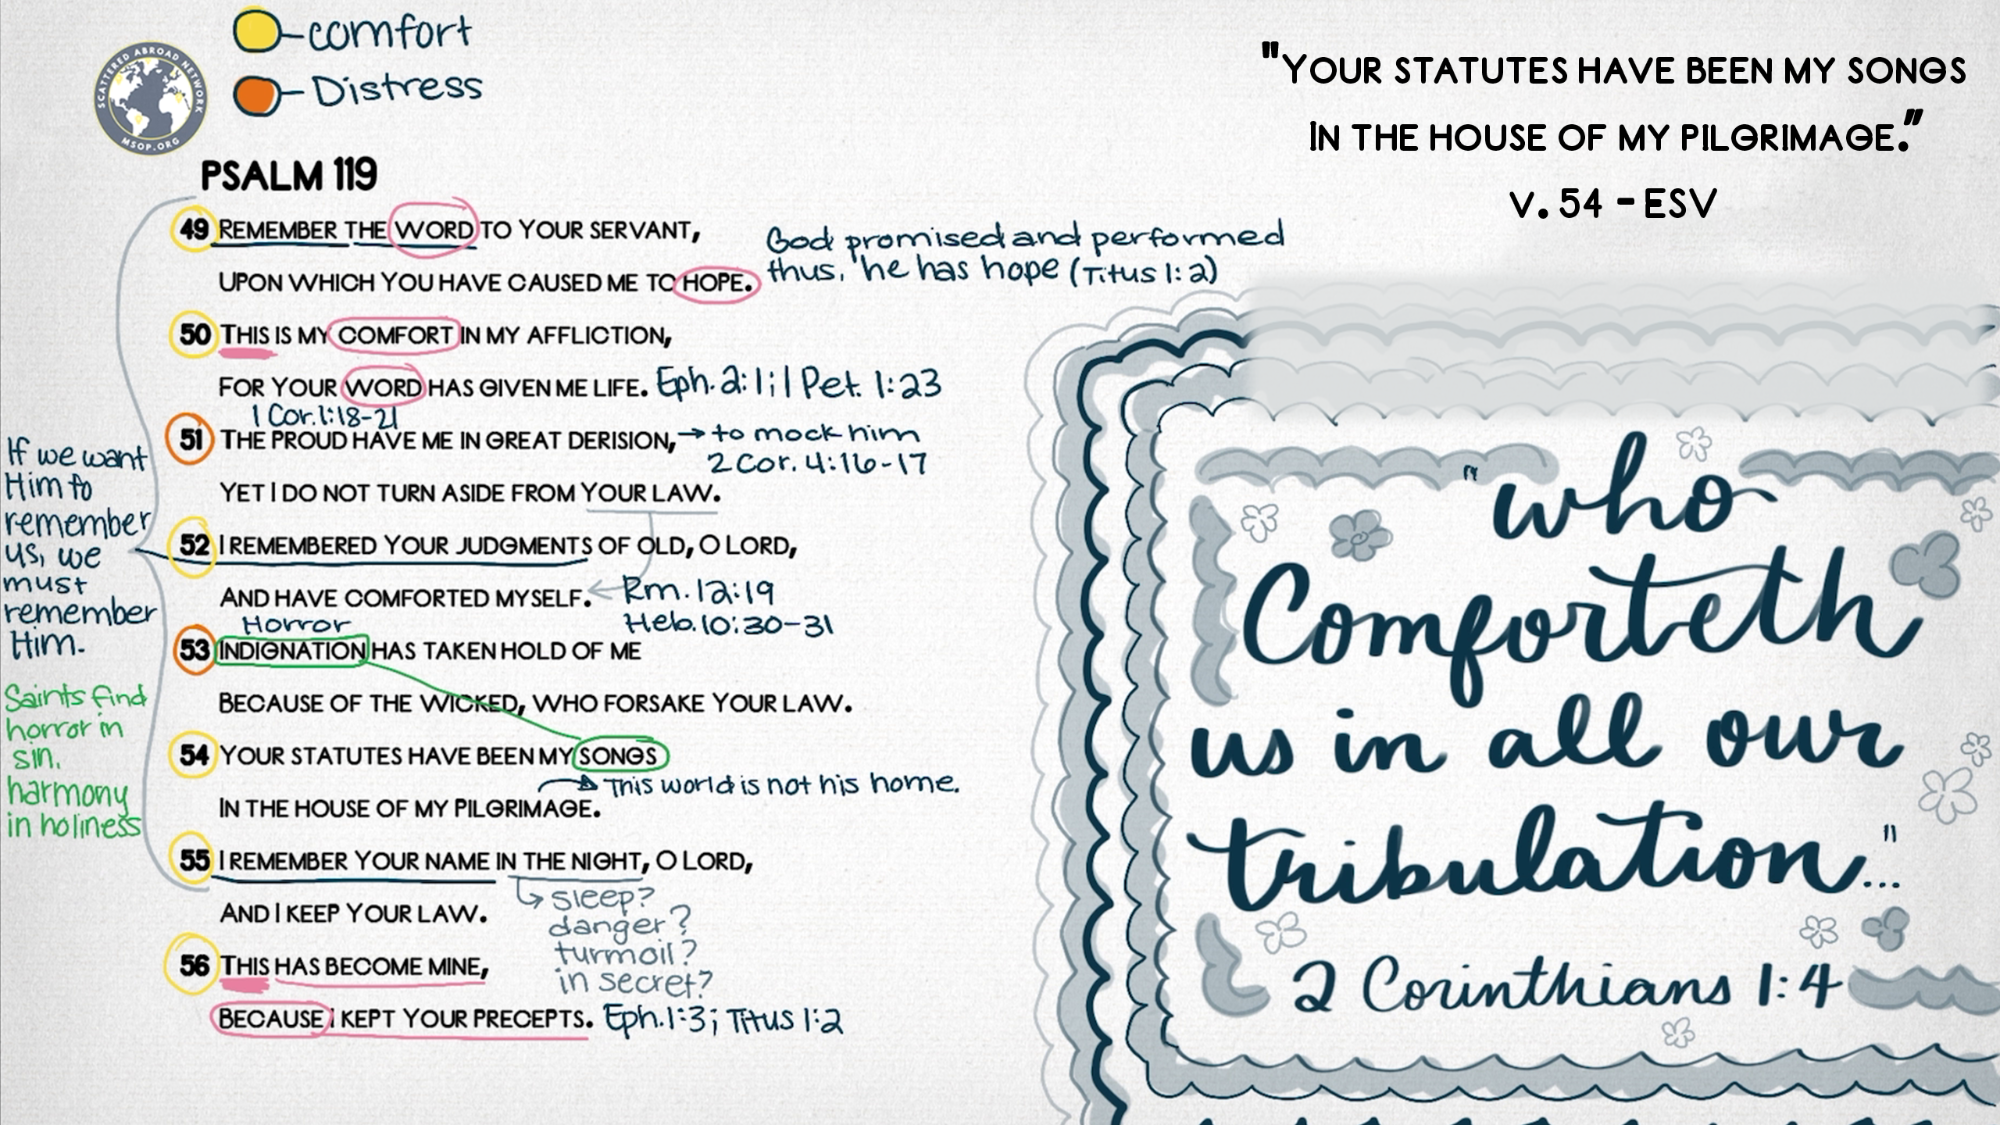 comfort
Distress
SCATTERED ABROAD NETWORK
MSOP.ORG
PSALM 119
49 REMEMBER THE WORD TO YOUR SERVANT,
UPON WHICH YOU HAVE CAUSED ME TO HOPE.
God promised and performed
thus, he has hope (Titus 1:2)
50 THIS IS MY COMFORT IN MY AFFLICTION,
FOR YOUR WORD HAS GIVEN ME LIFE. Eph. 2:1; 1 Pet. 1:23
1 Cor. 1:18-21
51 THE PROUD HAVE ME IN GREAT DERISION, → to mock him
2 Cor. 4:16-17
YET I DO NOT TURN ASIDE FROM YOUR LAW.
52 I REMEMBERED YOUR JUDGMENTS OF OLD, O LORD,
AND HAVE COMFORTED MYSELF. Rm. 12:19
Heb. 10:30-31
Horror
53 INDIGNATION HAS TAKEN HOLD OF ME
BECAUSE OF THE WICKED, WHO FORSAKE YOUR LAW.
54 YOUR STATUTES HAVE BEEN MY SONGS
This world is not his home.
IN THE HOUSE OF MY PILGRIMAGE.
55 I REMEMBER YOUR NAME IN THE NIGHT, O LORD,
sleep?
AND I KEEP YOUR LAW.
danger?
turmoil?
in secret?
56 THIS HAS BECOME MINE,
BECAUSE I KEPT YOUR PRECEPTS. Eph. 1:3; Titus 1:2
If we want
Him to
remember
us, we
must
remember
Him.
Saints find
horror in
sin,
harmony
in holiness
"YOUR STATUTES HAVE BEEN MY SONGS
IN THE HOUSE OF MY PILGRIMAGE."
V. 54 - ESV
"who
Comforteth
us in all our
tribulation..."
2 Corinthians 1:4